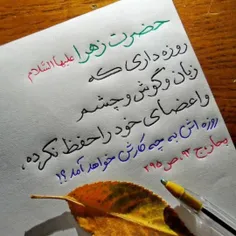 حضرت زهرا علیها السّلام
روزه داری که
زبان و گوش و چشم
و اعضای خود را حفظ نکرده،
روزه اش به چه کارش خواهد آمد؟!
بحار ج ۹۳، ص ۲۹۵